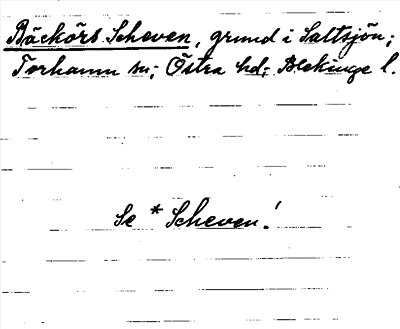 Bäckörs Scheven, grund i Saltsjön;
Torhamn sn; Östra hd; Blekinge l.
Se * Scheven!